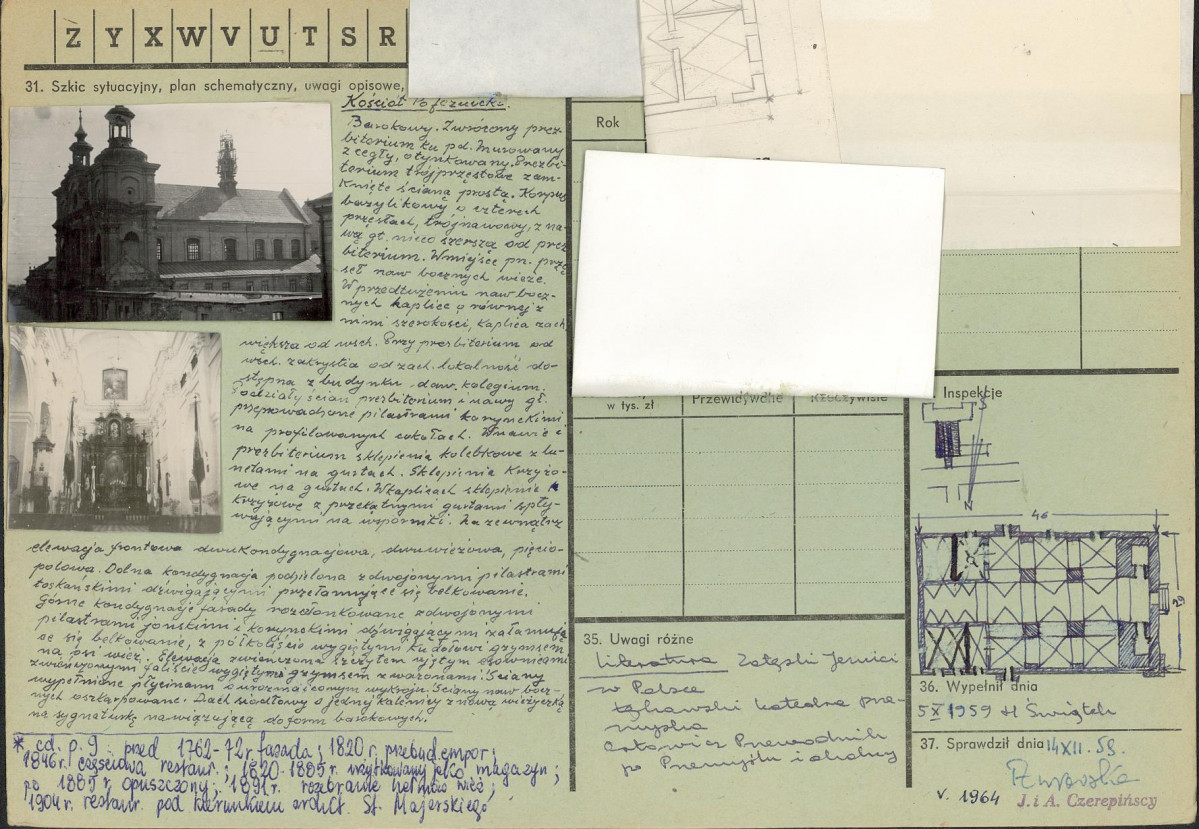 Ż Y X W V U T S R
31. Szkic sytuacyjny, plan schematyczny, uwagi opisowe,
Kościół
Barokowy. Zwrócony prez-
biterium ku pd. Murowany
z cegły, otynkowany. Prezbi-
terium trójprzęsłowe zam-
knięte ścianą prostą. Korpus
bazylikowy o czterech
przęsłach, trójnawowy, z na-
wą gł. nieco szerszą od prez
biterium. W miejsce pn. przę
seł naw bocznych wieże.
W przedłużeniu naw bocz-
nych kaplice o równej z
nimi szerokości, kaplica zach.
większa od wsch. Przy prezbiterium od
wsch. zakrystia od zach. lokalność do-
stępna z budynku daw. kolegium.
Podziały ścian prezbiterium i nawy gł.
przeprowadzone pilastrami korynckimi
na profilowanych cokołach. W nawie i
prezbiterium sklepienia kolebkowe z lu-
netami na gurtach. Sklepienia krzyżo-
we na gurtach. W kaplicach sklepienie
krzyżowe z przekątnymi gurtami spły-
wającymi na wsporniki. Na zewnątrz
elewacja frontowa dwukondygnacjowa, dwuwieżowa, pięcio-
polowa. Dolna kondygnacja podzielona zdwojonymi pilastrami
toskańskimi dźwigającymi przełamujące się belkowanie.
Górne kondygnacje fasady rozczłonkowane zdwojonymi
pilastrami jońskimi i korynckimi dźwigającymi załamują
ce się belkowanie, z półkoliście wygiętymi ku dołowi gzymsem
na osi wież. Elewacja zwieńczona szczytem ujętym esownicami
zwieńczonymi faliście wygiętym gzymsem z wazonami. Ściany
wypełnione płycinami o urozmaiconym wykroju. Ściany naw bocz-
nych oszkarpowane. Dach siodłowy o jednej kalenicy z nową wieżyczką
na sygnaturkę nawiązującą do form barokowych.
* cd. p. 9. przed 1762-72 r. fasada; 1820 r. przebud. empor;
1846 r. częściowa restaur.; 1820-1885 r. użytkowany jako magazyn;
po 1885 r. opuszczony; 1891 r. rozebranie hełmów wież;
1904 r. restaur. pod kierunkiem archit. St. Majerskiego
Rok
w tys. zł
Przewidywane
Rzeczywiste
Inspekcje
N
46
29
35. Uwagi różne
Literatura Załęski Jezuici
w Polsce
katedra prze-
myska
Orłowicz Przewodnik
po Przemyślu i okolicy
36. Wypełnił dnia
5 X 1959 H Świątek
37. Sprawdził dnia 14 XII. 59.
V. 1964
J. i A. Czerepińscy